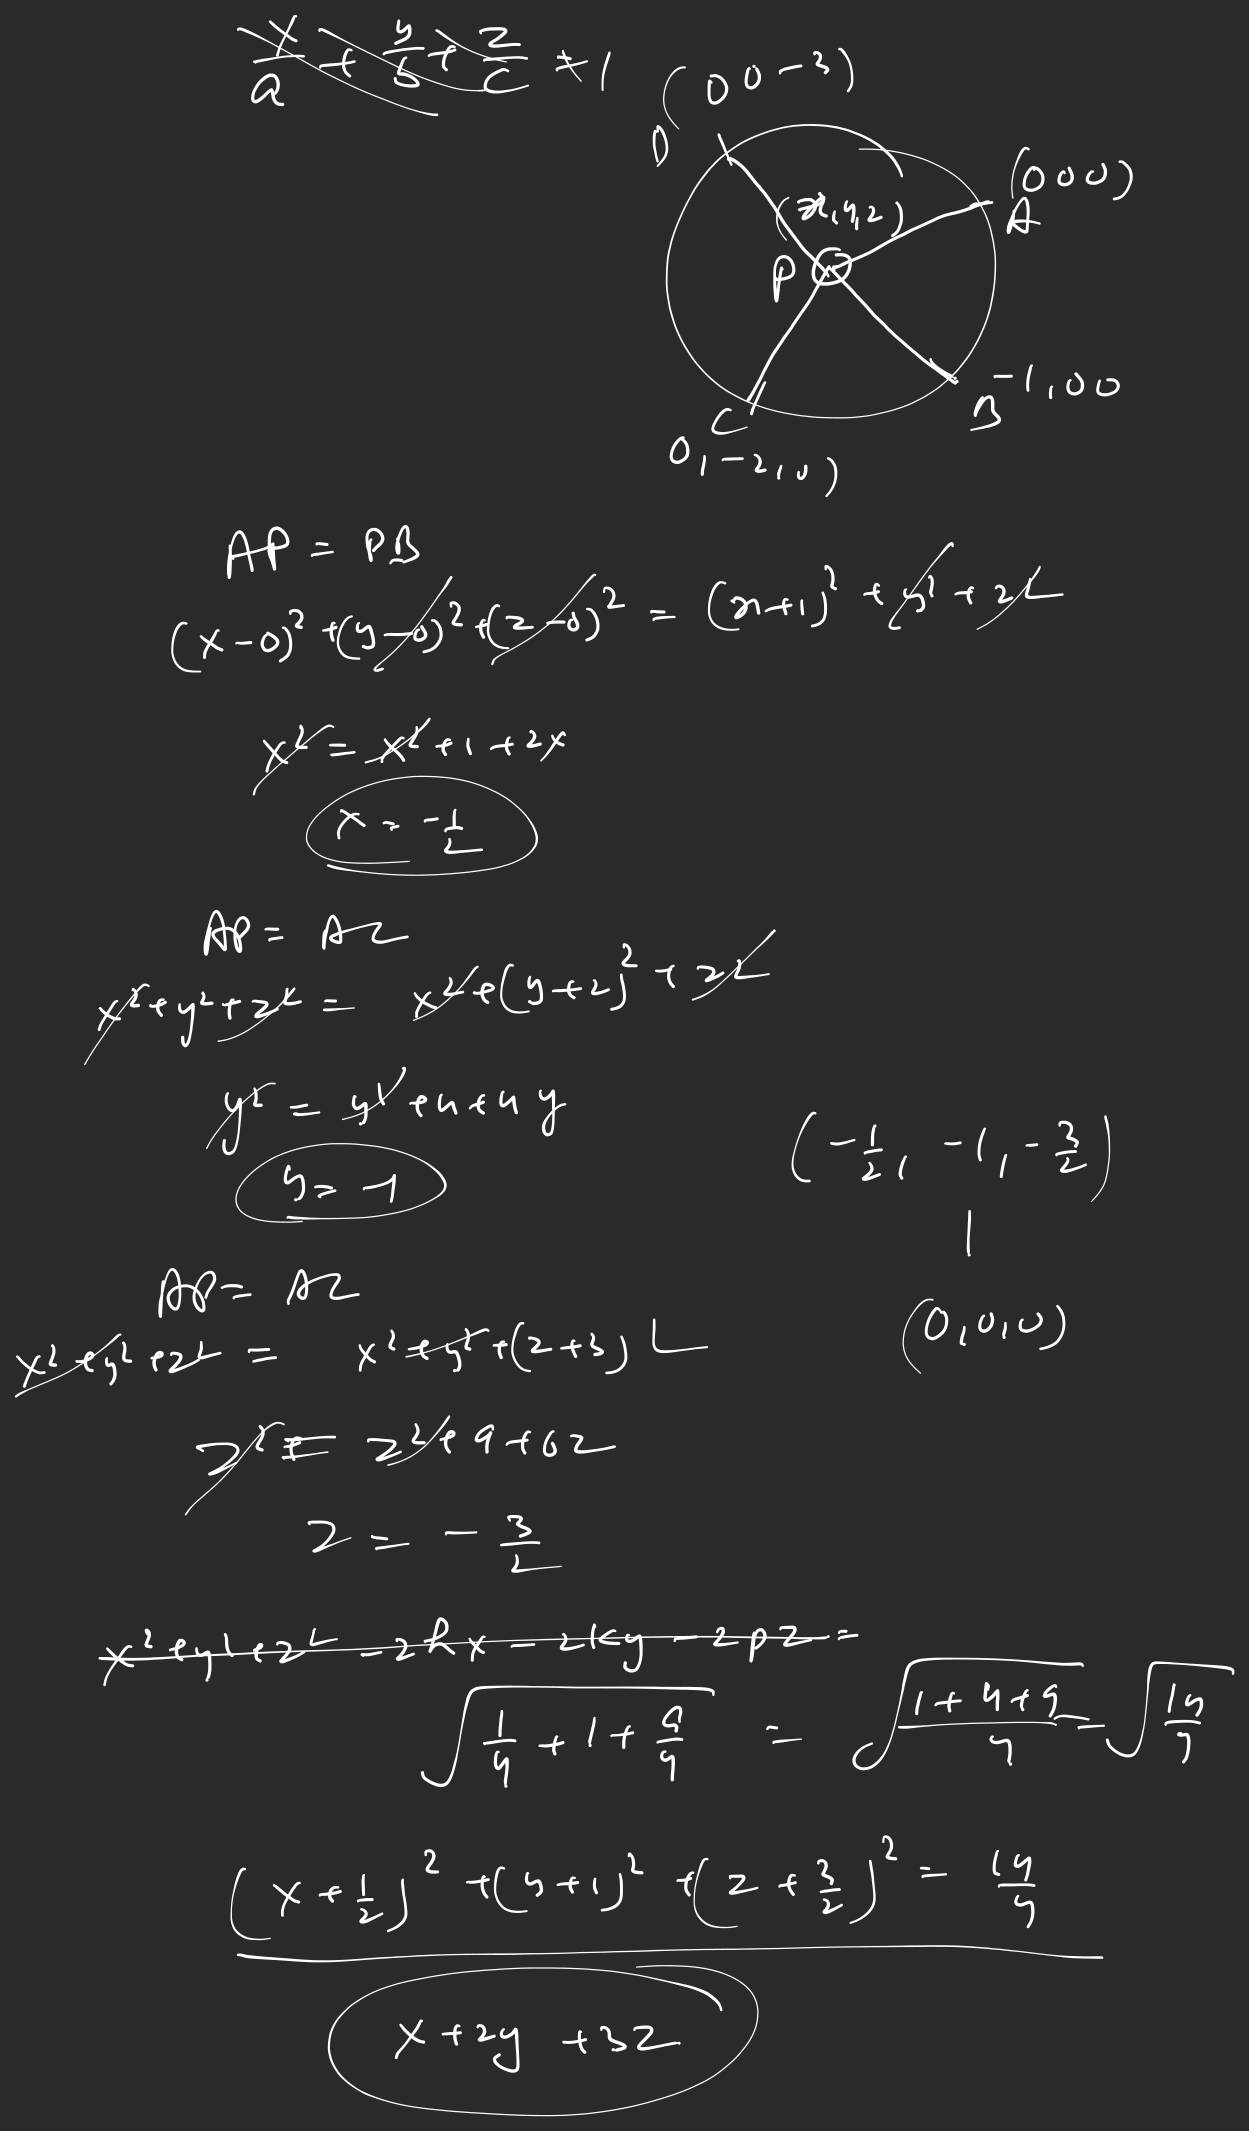 x/a + y/b + z/c ≠ 1
(0 0 -3)
D
(0 0 0)
A
(x, y, z)
P
B -1, 0 0
C
0, -2, 0)
AP = PB
(x-0)² + (y-0)² + (z-0)² = (x+1)² + y² + z²
x² = x² + 1 + 2x
x = -1/2
AP = AC
x² + y² + z² = x² + (y+2)² + z²
y² = y² + 4 + 4y
y = -1
(-1/2, -1, -3/2)
(0, 0, 0)
AP = AC
x² + y² + z² = x² + y² + (z+3)²
z² = z² + 9 + 6z
z = -3/2
x² + y² + z² - 2hx - 2ky - 2pz =
√(1/4 + 1 + 9/4) = √((1+4+9)/4) = √(14/4)
(x + 1/2)² + (y+1)² + (z + 3/2)² = 14/4
x + 2y + 3z